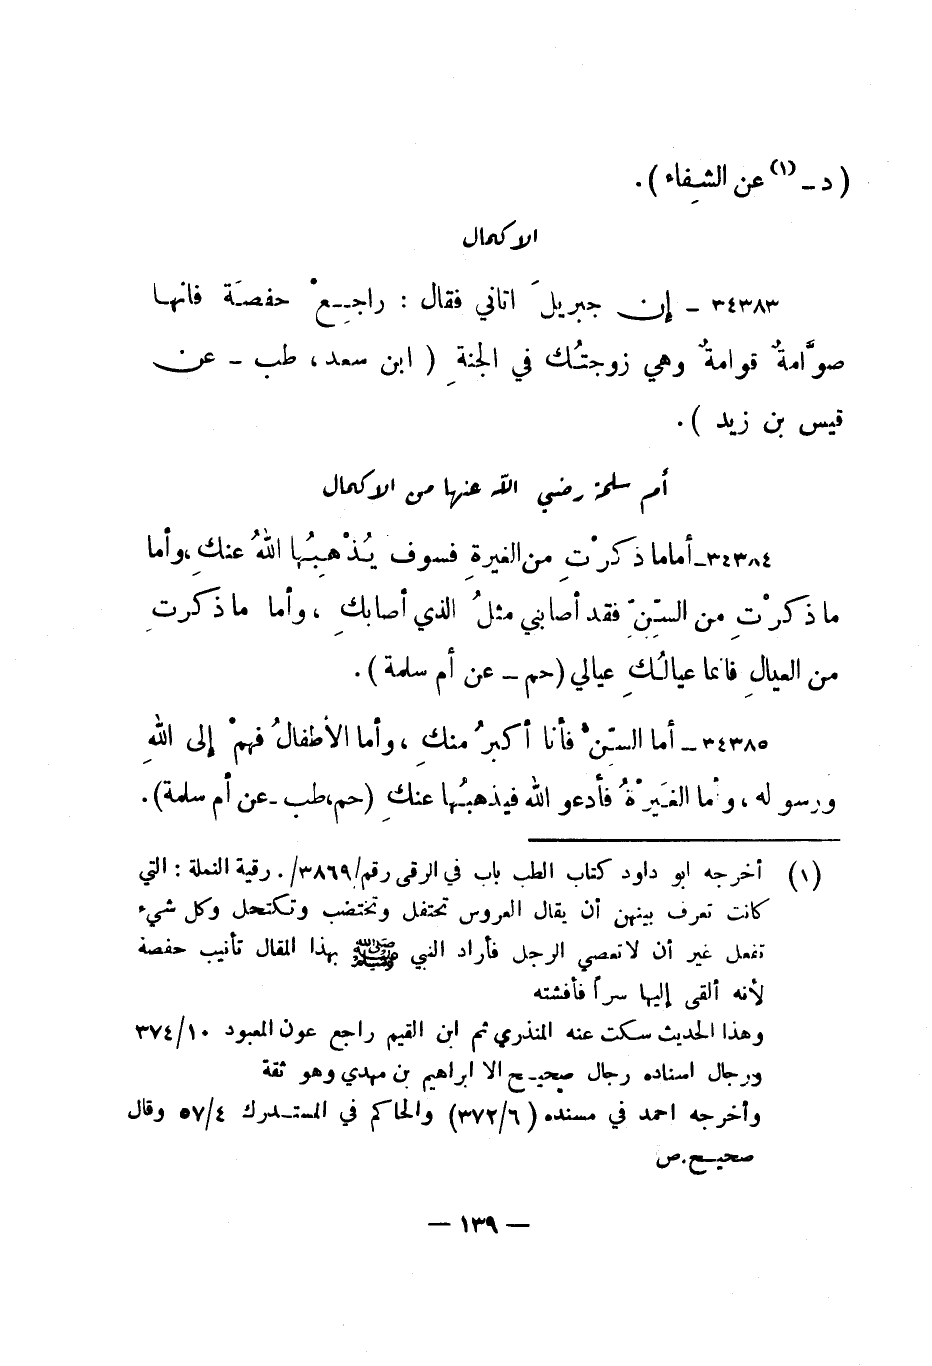 ( د ـ (١) عن الشِفاء ) .
الاكمال
٣٤٣٨٣ ـ إن جبريلَ اتاني فقال : راجِعْ حفصَة فانها
صوَّامةٌ قوامةٌ وهي زوجتُك في الجنةِ ( ابن سعد ، طب ـ عن
قيس بن زيد ) .
أم سلمة رضي الله عنها من الاكمال
٣٤٣٨٤ـ أماما ذكرْتِ من الغيرةِ فسوف يُذْهِبُها اللهُ عنكِ ، وأما
ما ذكرْتِ من السِّنِّ فقد أصابني مثلُ الذي أصابكِ ، وأما ما ذكرتِ
من العيالِ فانما عيالُكِ عيالي (حم ـ عن أم سلمة ) .
٣٤٣٨٥ ـ أما السِّنُّ فأنا أكبرُ منكِ ، وأما الأطفالُ فهمْ إلى اللهِ
ورسوله ، وأما الغَيْرَةُ فأدعو الله فيذهبُها عنكِ (حم،طب ـعن أم سلمة) .
(١) أخرجه ابو داود كتاب الطب باب في الرقى رقم/٣٨٦٩/ . رقية النملة : التي
كانت تعرف بينهن أن يقال العروس تحتفل وتختضب وتكتحل وكل شيء
تفعل غير أن لاتعصي الرجل فأراد النبي ﷺ بهذا المقال تأنيب حفصة
لأنه ألقى إليها سراً فأفشته
وهذا الحديث سكت عنه المنذري ثم ابن القيم راجع عون المعبود ٣٧٤/١٠
ورجال اسناده رجال صحيح الا ابراهيم بن مهدي وهو ثقة
وأخرجه احمد في مسنده ( ٣٧٢/٦) والحاكم في المستدرك ٥٧/٤ وقال
صحيح . ص
— ١٣٩ —